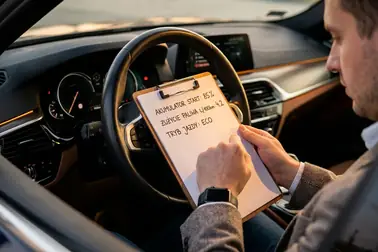 AKUMULATOR START: 85%
ZUŻYCIE PALIWA L/100km 4.2
TRYB JAZDY: ECO